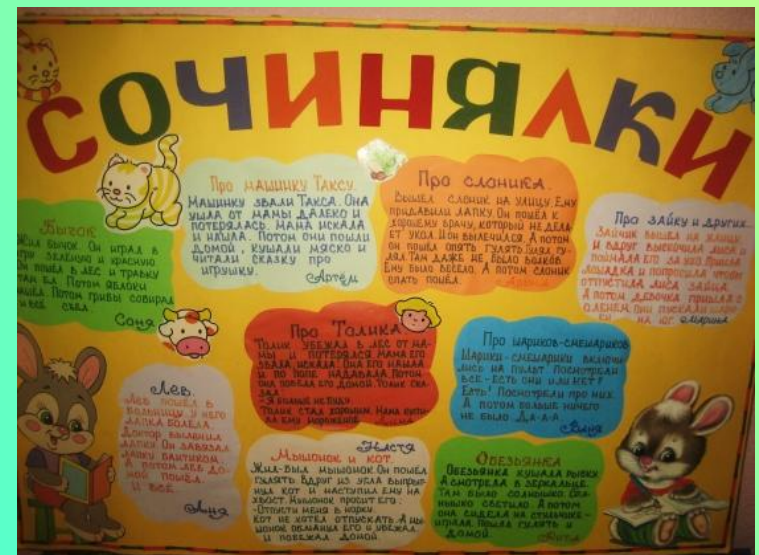 СОЧИНЯЛКИ
Про машинку Таксу.
Машинку звали Такса. Она
ушла от мамы далеко и
потерялась. Мама искала
и нашла. Потом они пошли
домой, кушали мяско и
читали сказку про
игрушку.
Артём
Про слоника.
Вышел слоник на улицу. Ему
придавили лапку. Он пошёл к
хорошему врачу, который не дела-
ет укол. И он вылечился. А потом
он пошёл опять гулять. Гулял, гу-
лял. Там даже не было волков.
Ему было весело. А потом слоник
спать пошёл.
Про зайку и других.
Зайчик вышел на улицу
и вдруг выскочила лиса и
поймала его за ухо. Пришла
лошадка и попросила чтобы
отпустила лиса зайца.
А потом девочка пришла с
оленем. Они
на юг. Марина
Бычок
Жил бычок. Он играл в
зелёную и красную
Он пошёл в лес и травку
там ел. Потом яблоки
Потом грибы собирал
и всё съел.
Соня
Про Толика
Толик убежал в лес от ма-
мы и потерялся. Мама его
звала, искала. Она его нашла
и по попе надавала. Потом
она повела его домой. Толик ска-
зал:
- Я больше не буду.
Толик стал хорошим. Мама купи-
ла ему мороженое.
Про шариков-смешариков
Шарики-смешарики включи-
лись на пульт. Посмотрели
все - есть они или нет?
Есть! Посмотрели про них.
А потом больше ничего
не было. Да-а-а.
Ваня
Лев.
Лев пошёл в
больницу. У него
лапка болела.
Доктор вылечил
лапку. Он завязал
лапку бантиком.
А потом лев до-
мой пошёл
и всё.
Настя
Мышонок и кот.
Жил-был мышонок. Он пошёл
гулять. Вдруг из угла выпрыг-
нул кот и наступил ему на
хвост. Мышонок просит его:
- Отпусти меня в норку.
Кот не хотел отпускать. А мы-
шонок обманул его и убежал.
и побежал домой.
Обезьянка
Обезьянка кушала рыбку
А смотрела в зеркальце.
Там было солнышко. Сол-
нышко светило. А потом
она сидела на стульчике -
играла. Пошла гулять и
домой.